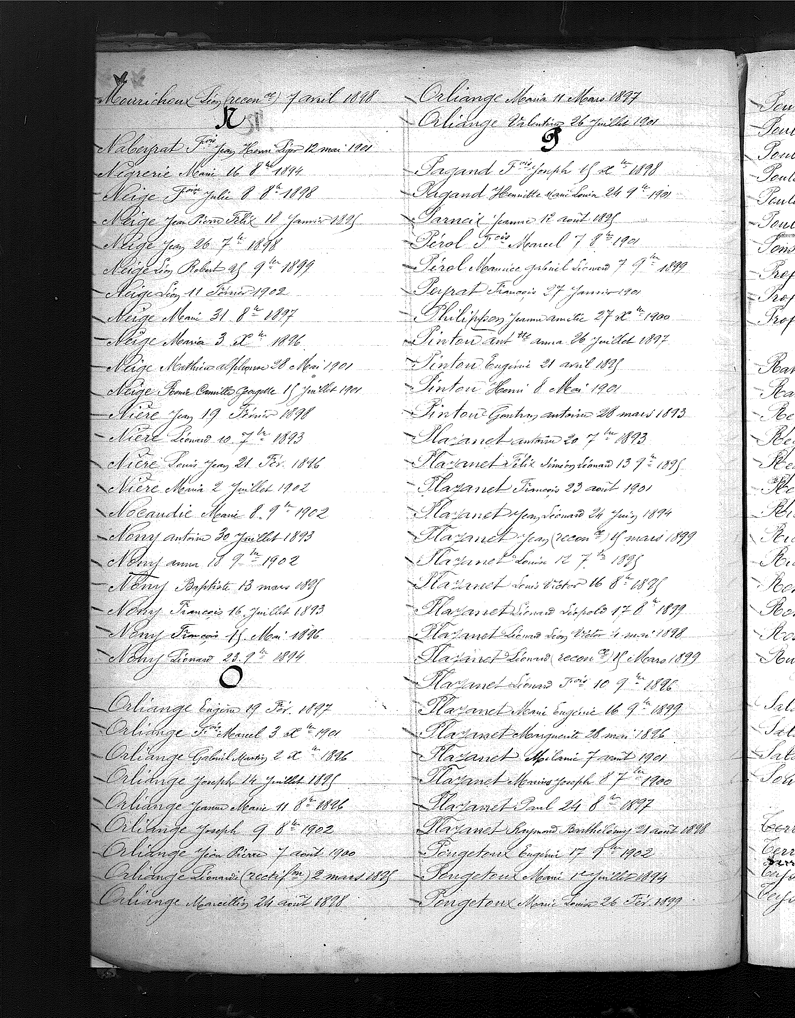 Meurichoux Léon (recon ce) 7 avril 1898
N
Nabeyrat Fois Jean Henri 12 mai 1901
Négrerie Marie 16 8bre 1894
Neige Foise Julie 8 8bre 1898
Neige Jean Pierre Félix 11 Janvier 1895
Neige Jean 26 7bre 1898
Neige Léon Robert 25 9bre 1899
Neige Léon 11 Février 1902
Neige Marie 31 8bre 1897
Neige Maria 3 Xbre 1896
Neige Mathieu Alphonse 28 Mai 1901
Neige René Camille Georgette 15 Juillet 1901
Nière Jean 19 Février 1898
Nière Léonard 10 7bre 1893
Nière Louis Jean 21 Fév. 1896
Nière Maria 2 Juillet 1902
Nocaudie Marie 8 9bre 1902
Nony antoine 30 Juillet 1893
Nony anna 18 9bre 1902
Nony Baptiste 13 mars 1895
Nony François 16 Juillet 1893
Nony François 15 Mai 1896
Nony Léonard 23 9bre 1894
O
Orliange Eugène 19 Fév. 1897
Orliange Fois Marcel 3 Xbre 1901
Orliange Gabriel Martin 2 Xbre 1896
Orliange Joseph 14 Juillet 1895
Orliange Jeanne Marie 11 8bre 1896
Orliange Joseph 9 8bre 1902
Orliange Jean Pierre 7 août 1900
Orliange Léonard (rectif on) 2 mars 1895
Orliange Marcellin 24 août 1898
Orliange Maria 11 Mars 1897
Orliange Valentine 26 Juillet 1901
P
Pagand Fois Joseph 15 Xbre 1898
Pagand Henriette Marie Louise 24 9bre 1901
Parneix Jeanne 12 août 1895
Pérol Fois Marcel 7 8bre 1901
Pérol Maurice Gabriel Léonard 7 9bre 1899
Peyrat François 27 Janvier 1901
Philippon Jeanne Amélie 27 Xbre 1900
Pinton antte anna 26 Juillet 1897
Pinton Eugénie 21 avril 1895
Pinton Henri 8 Mai 1901
Pinton Gontran antoine 28 mars 1893
Plazanet antoine 20 7bre 1893
Plazanet Félix Siméon Léonard 13 9bre 1895
Plazanet François 23 août 1901
Plazanet Jean Léonard 24 Juin 1894
Plazanet Jean (recon ce) 15 mars 1899
Plazanet Louise 12 7bre 1895
Plazanet Louis Victor 16 8bre 1895
Plazanet Léonard Léopold 17 8bre 1899
Plazanet Léonard Léon Victor 4 mai 1898
Plazanet Léonard (recon ce) 15 Mars 1899
Plazanet Léonard Fois 10 9bre 1896
Plazanet Marie Eugénie 16 9bre 1899
Plazanet Marguerite 28 mai 1896
Plazanet Mélanie 7 août 1901
Plazanet Marius Joseph 8 7bre 1900
Plazanet Paul 24 8bre 1897
Plazanet Raymond Barthélémy 21 août 1898
Pongetoux Eugénie 17 9bre 1902
Pongetoux Marie 1er Juillet 1894
Pongetoux Marie Louise 26 Fév. 1899